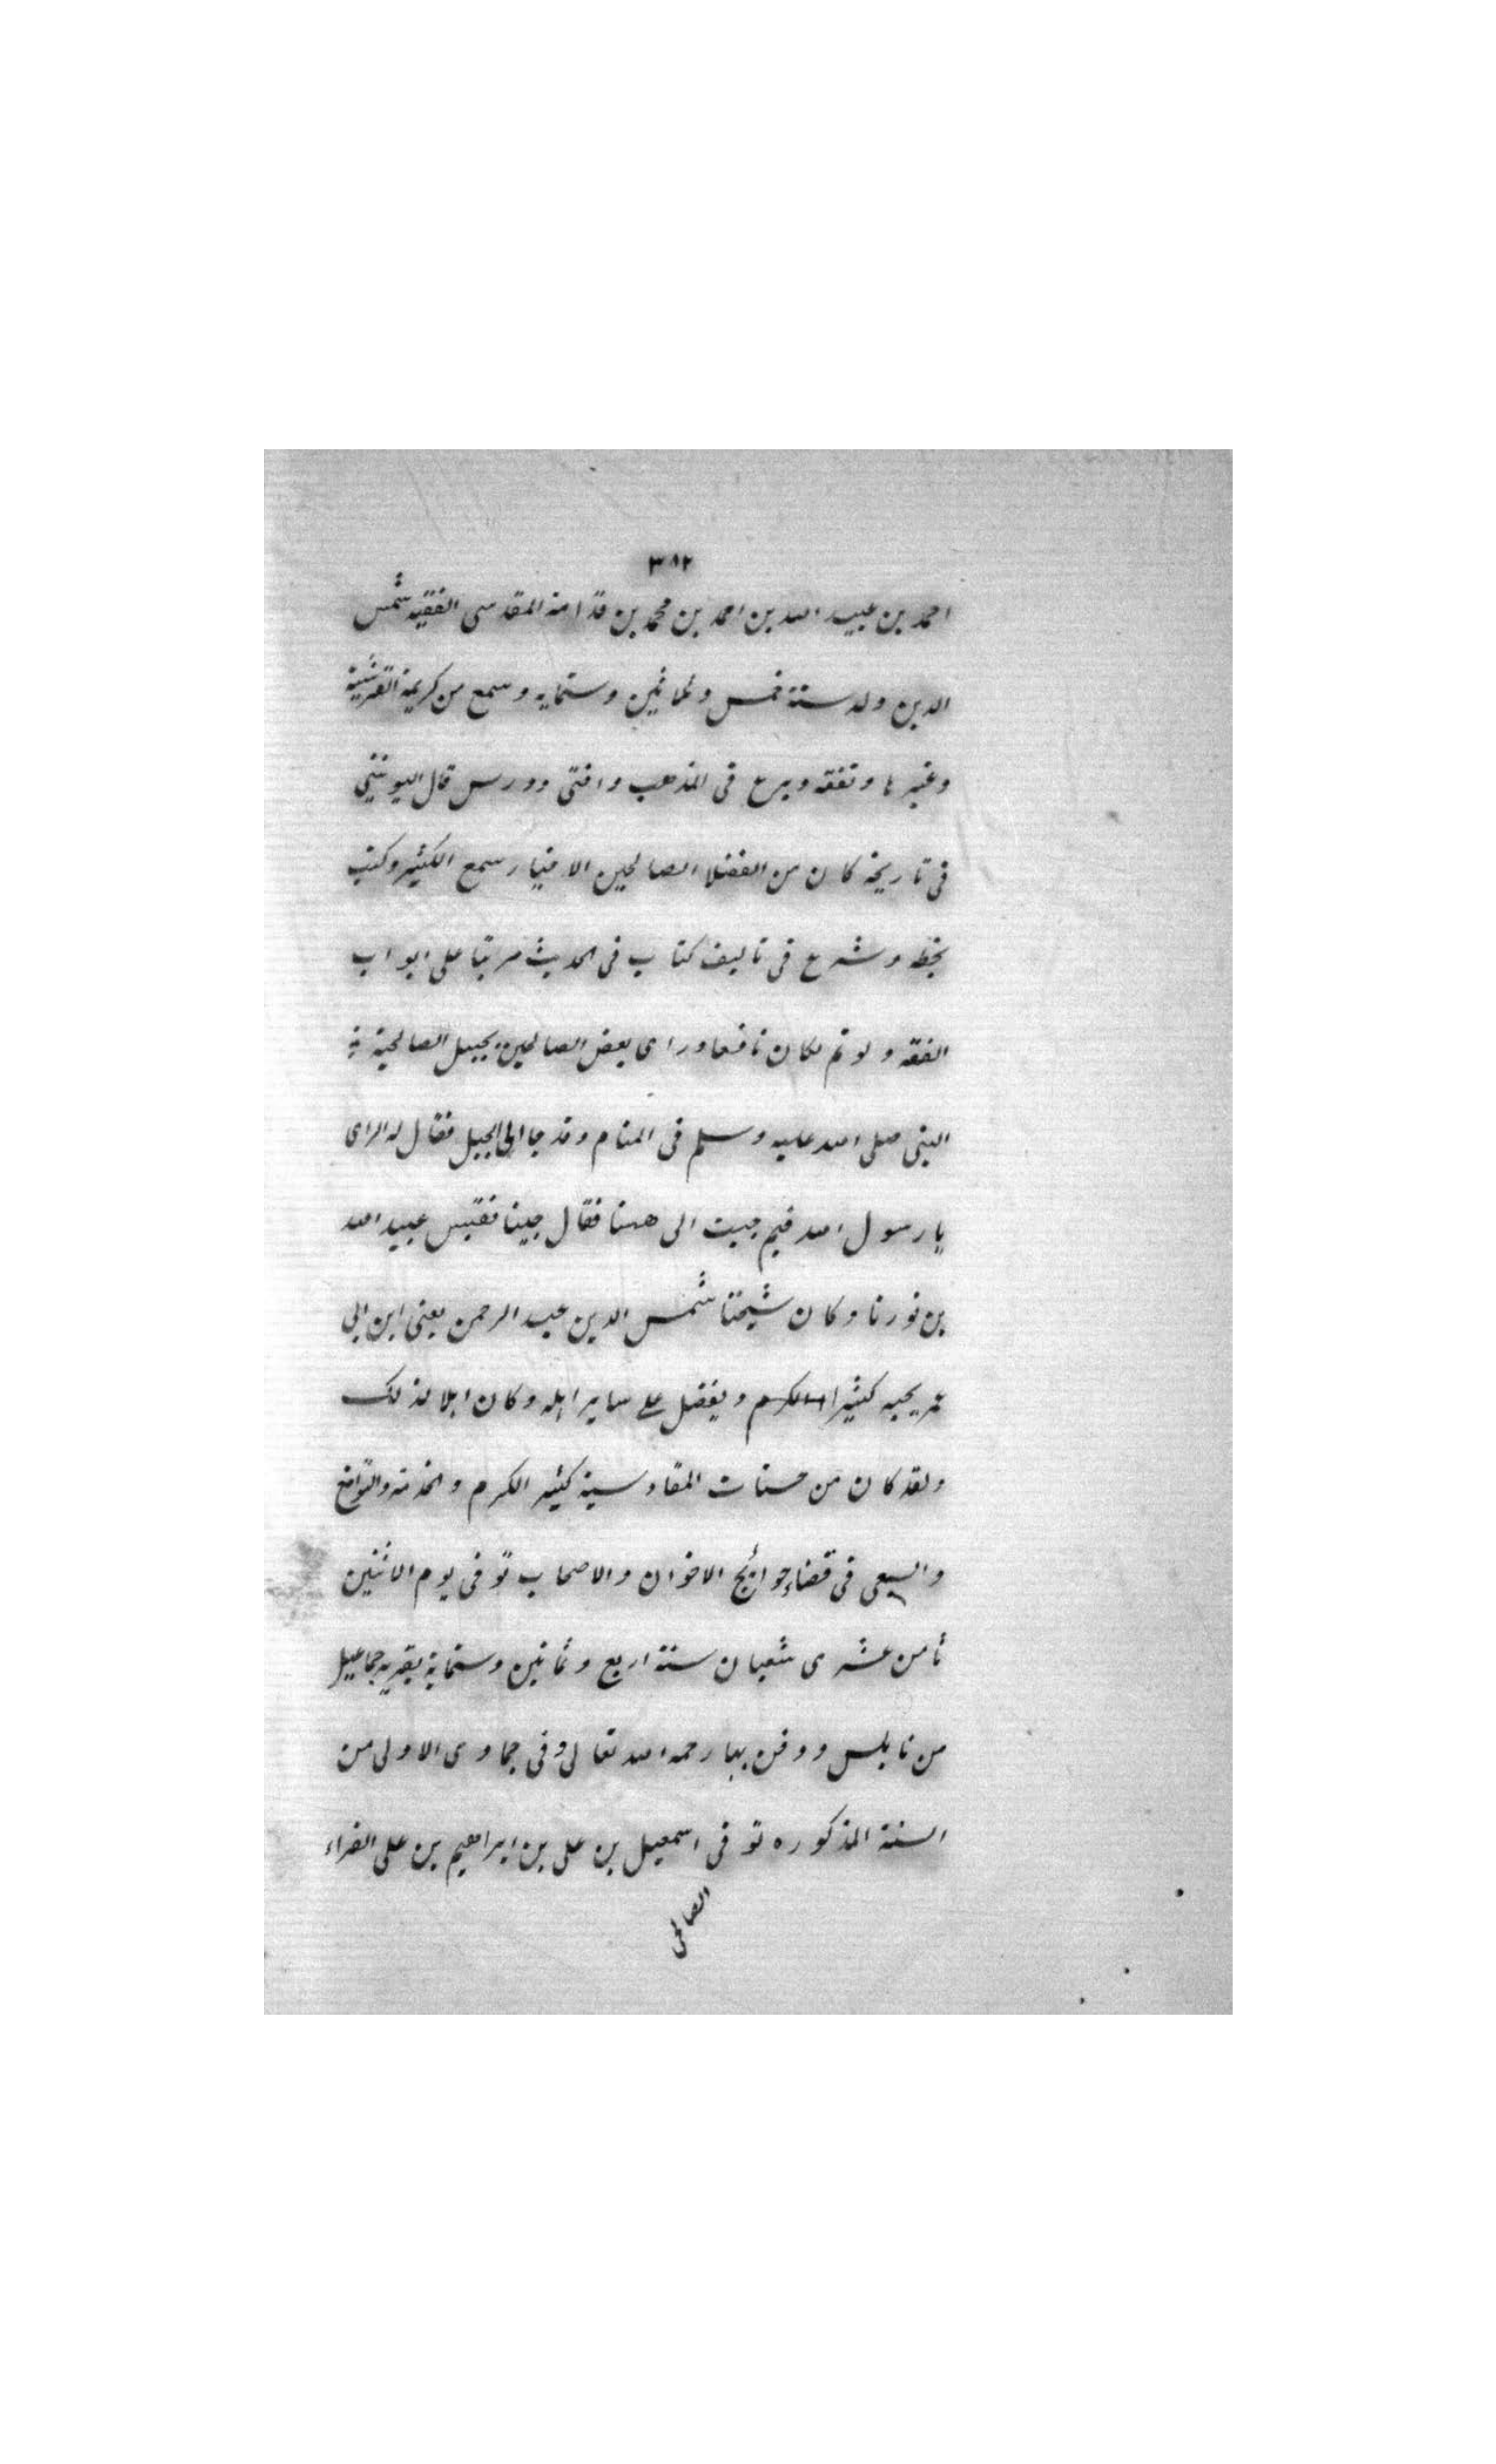 ٣٨٢
احمد بن عبيد الله بن احمد بن محمد بن قدامة المقدسى الفقيه شمس
الدين ولد سنة خمس وثمانين وستمايه وسمع من كريمة القرشية
وغيرها وتفقه وبرع فى المذهب وافتى ودرس قال اليونينى
فى تاريخه كان من الفضلا الصالحين الاخيار سمع الكثير وكتب
بخطه وشرع فى تاليف كتاب فى الحديث مرتبا على ابواب
الفقه ولو تم لكان نافعا وراى بعض الصالحين بجبل الصالحية
النبى صلى الله عليه وسلم فى المنام وقد جا الى الجبل فقال له الراى
يا رسول الله فيم جيت الى ههنا فقال جينا نقتبس عبيد الله
من نورنا وكان شيخنا شمس الدين عبد الرحمن يعنى ابن ابى
عمر يحبه كثيرا ويفضل على ساير اهله وكان اهلا لذلك
ولقد كان من حسنات المقادسية كثير الكرم والخدمة والتواضع
والسعى فى قضاء حوائج الاخوان والاصحاب توفى يوم الاثنين
ثامن عشرى شعبان سنة اربع وثمانين وستماية بقرية جماعيل
من نابلس ودفن بها رحمه الله تعالى وفى جمادى الاولى من
السنة المذكوره توفى اسمعيل بن على بن ابراهيم بن على الفراء
الصالحى